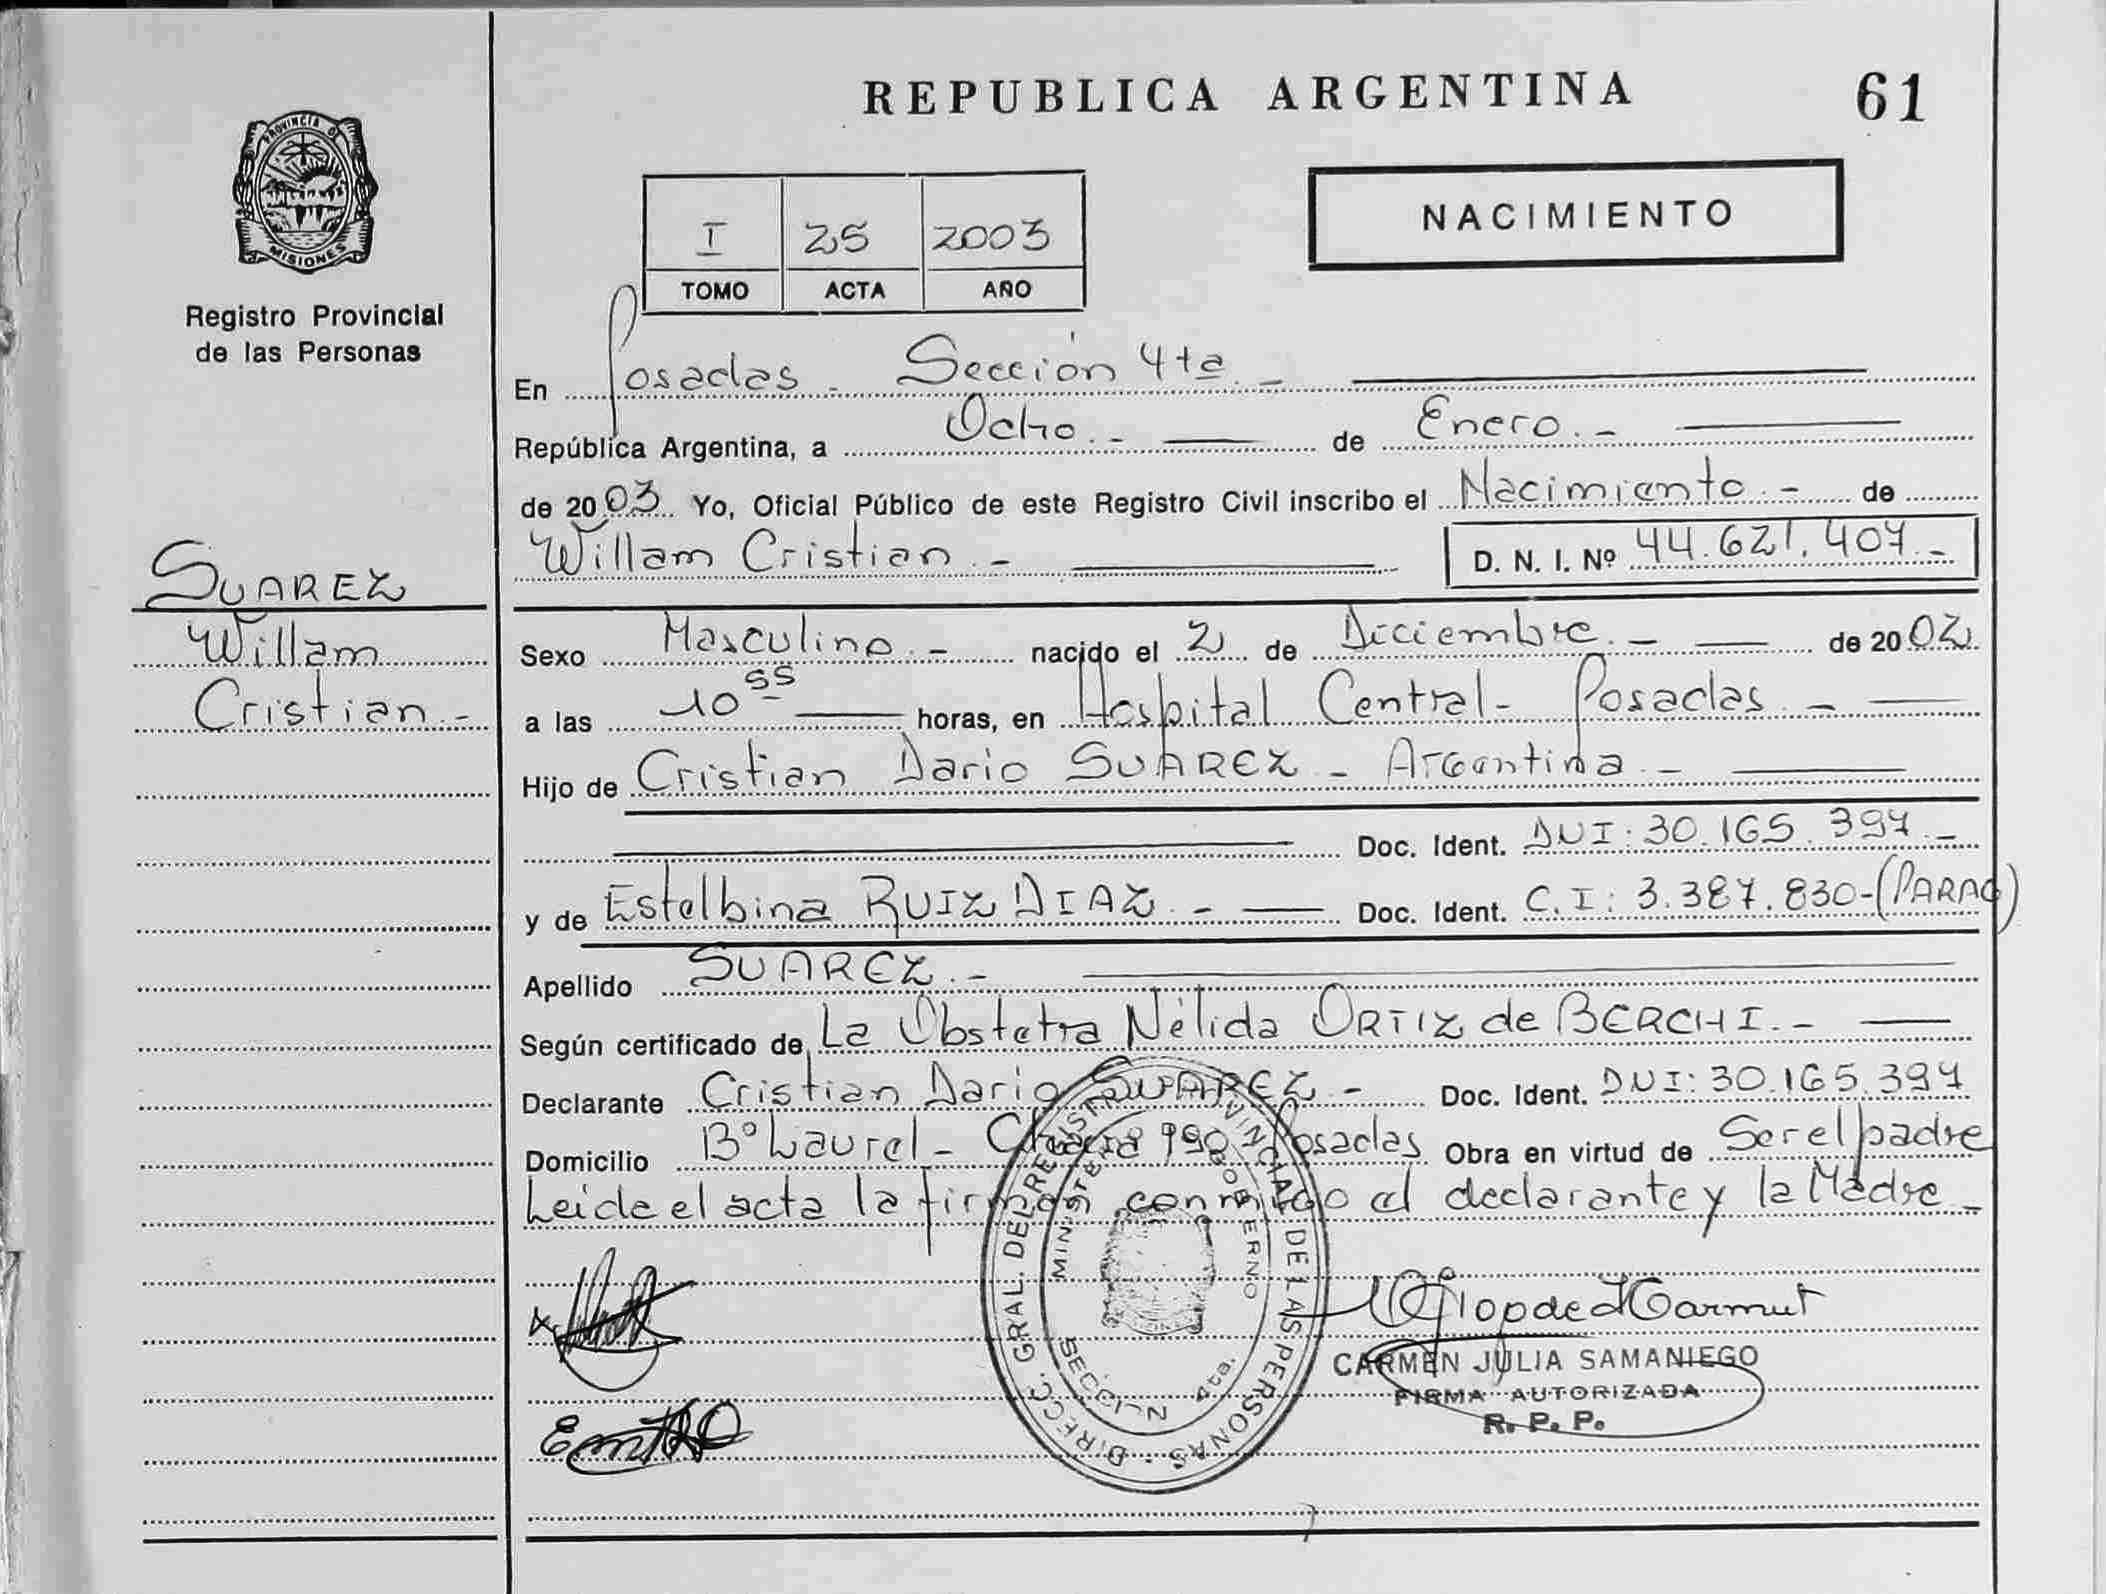 REPUBLICA ARGENTINA
61
PROVINCIA DE
MISIONES
Registro Provincial
de las Personas
NACIMIENTO
I 25 2003
TOMO ACTA AÑO
En Posadas - Sección 4ta. -
República Argentina, a Ocho. - de Enero. -
de 2003 Yo, Oficial Público de este Registro Civil inscribo el Nacimiento. - de
Willam Cristian. - D. N. I. Nº 44.621.407. -
SUAREZ
Willam
Cristian. -
Sexo Masculino. - nacido el 2 de Diciembre. - de 2002.
a las 10 55 horas, en Hospital Central - Posadas. -
Hijo de Cristian Dario SUAREZ - Argentina. -
Doc. Ident. DNI: 30.165.397. -
y de Estelbina RUIZ DIAZ. - Doc. Ident. C.I: 3.387.830-(PARAG)
Apellido SUAREZ. -
Según certificado de La Obstetra Nélida ORTIZ de BERCHI. -
Declarante Cristian Dario SUAREZ. - Doc. Ident. DNI: 30.165.397
Domicilio Bº Laurel - Posadas Obra en virtud de Ser el padre
Leida el acta la firman conmigo el declarante y la Madre -
DIRECC. GRAL. DEL REGISTRO PROVINCIAL DE LAS PERSONAS
MINISTERIO GOBIERNO
SECCION 4ta.
CARMEN JULIA SAMANIEGO
FIRMA AUTORIZADA
R. P. P.